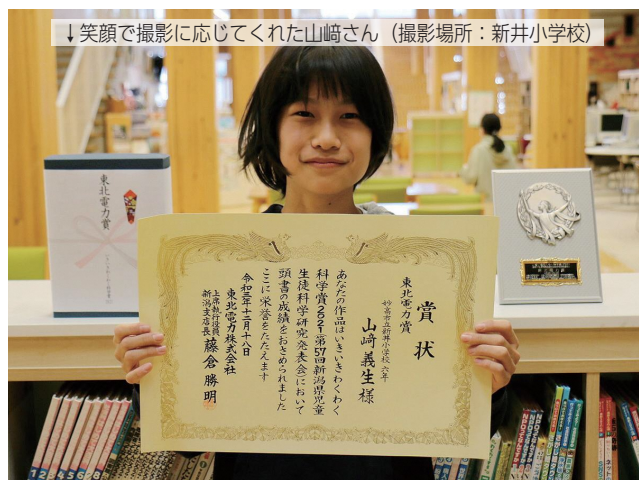 ↓笑顔で撮影に応じてくれた山﨑さん（撮影場所：新井小学校）
東北電力賞
賞状
東北電力賞
妙高市立新井小学校 六年
山﨑義生様
あなたの作品はいきいきわくわく
科学賞2021（第57回新潟県児童
生徒科学研究発表会）において
頭書の成績をおさめられました
ここに栄誉をたたえます
令和三年十二月十八日
東北電力株式会社
上席執行役員
新潟支店長 藤倉勝明